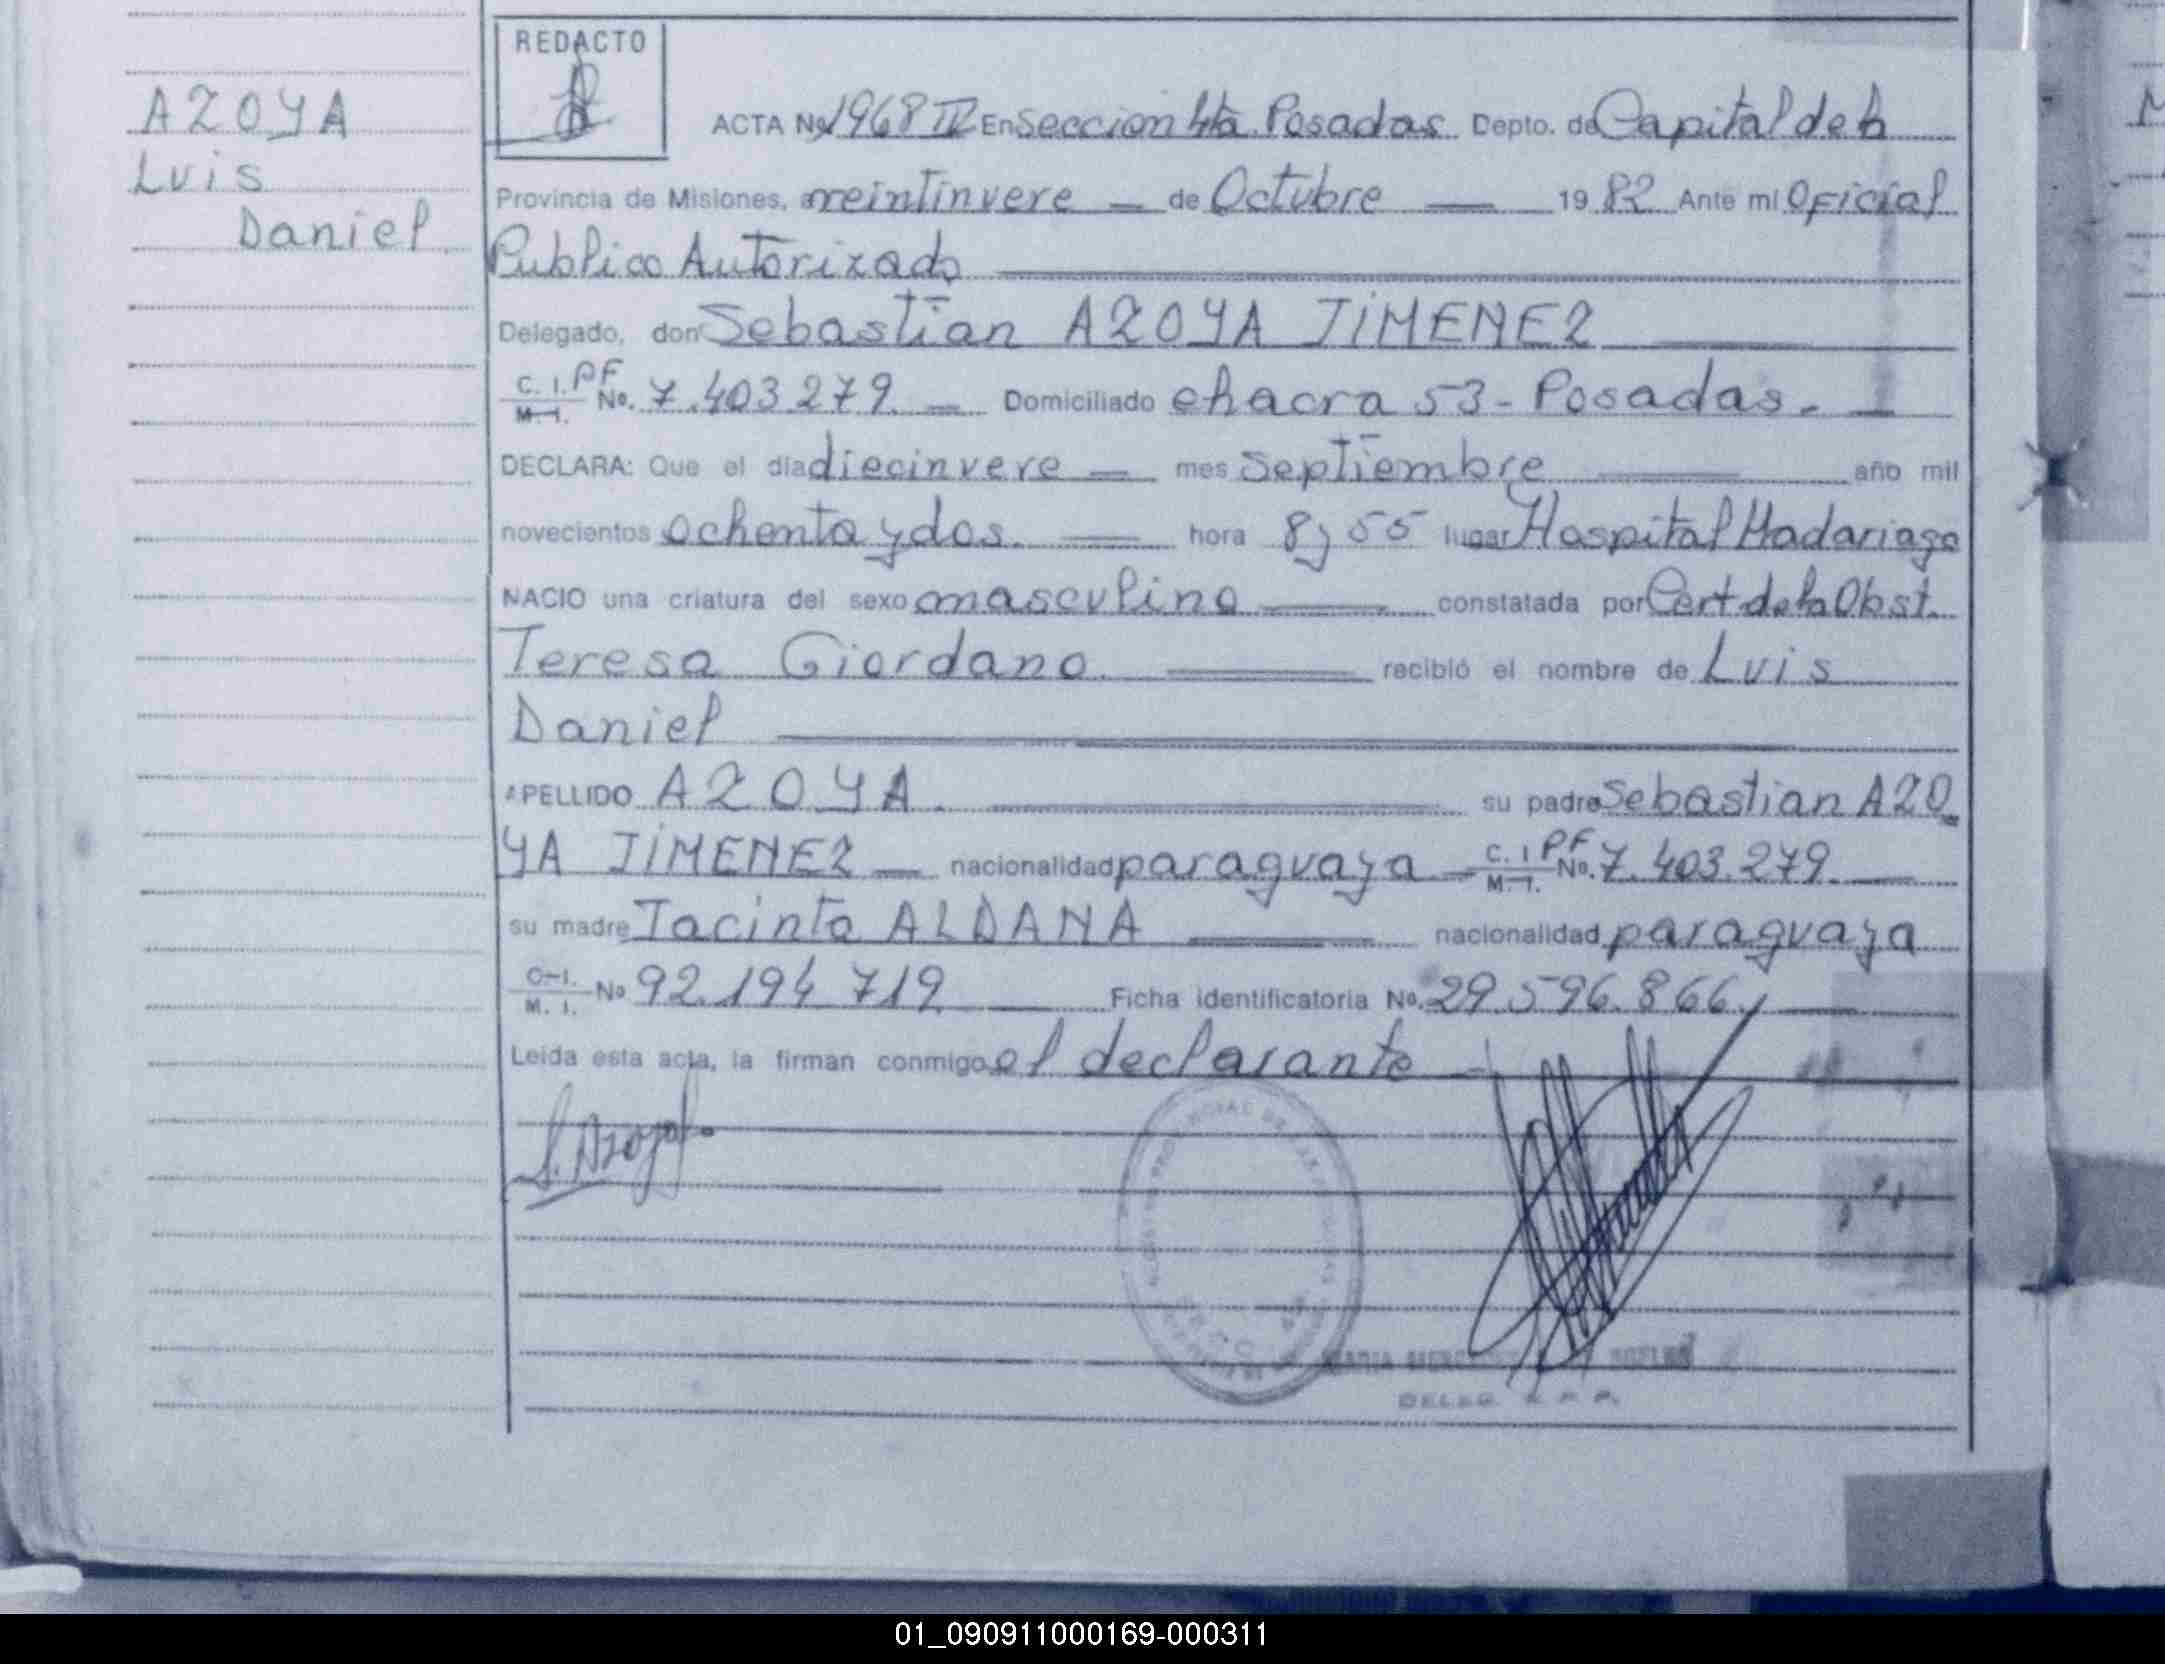 REDACTO
AZOYA
Luis
Daniel
ACTA No 1968 IV En Seccion 4ta Posadas Depto. de Capital de la
Provincia de Misiones, a veintinueve de Octubre 1982 Ante mi Oficial
Publico Autorizado
Delegado, don Sebastian AZOYA JIMENEZ
C. I. PF M. I. No. 7.403.279 Domiciliado chacra 53 - Posadas.
DECLARA: Que el día diecinueve mes septiembre año mil
novecientos ochenta y dos. hora 8 y 55 lugar Hospital Madariaga
NACIO una criatura del sexo masculino constatada por Cert. de la Obst.
Teresa Giordano recibió el nombre de Luis
Daniel
APELLIDO AZOYA. su padre Sebastian AZO
YA JIMENEZ nacionalidad paraguaya C. I. PF M. I. No. 7.403.279
su madre Jacinta ALDANA nacionalidad paraguaya
C. I. M. I. No 92.194.719 Ficha identificatoria No. 29.596.866
Leída esta acta, la firman conmigo el declarante
S. Azoya
MARIA
DELEG. R. P. P.
01_090911000169-000311